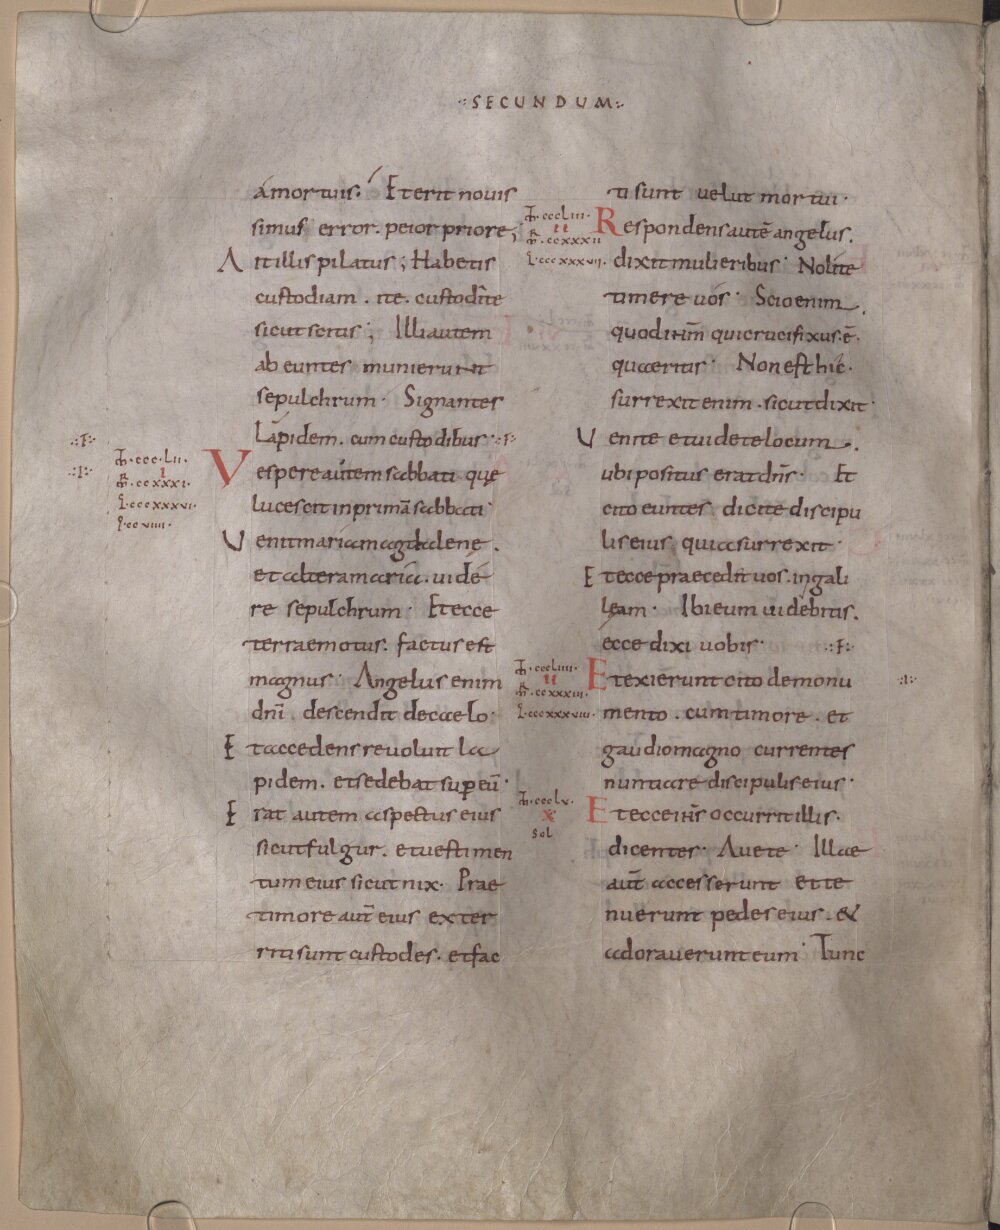 ·:SECUNDUM:·
á mortuis. Et erit novis
simus error. peior priore;
Ait illis pilatus; Habetis
custodiam. ite. custodite
sicut scitis; Illi autem
abeuntes munierunt
sepulchrum· Signantes
Lapidem. cum custodibus· ·:F:·
·:F:·
·:I:·
·ccc·Lii·
I
·ccxxxi·
·cccxxxvi·
·ccviiii·
Vespere autem sabbati que
lucescit in primā sabbati·
Venit maria magdalene.
et altera maria. uidé
re sepulchrum· Et ecce
terraemotus. factus est
magnus· Angelus enim
dn̄i descendit de caelo·
Et accedens revoluit la
pidem. et sedebat sup eū·
Erat autem aspectus eius
sicut fulgur. et vestimen
tum eius sicut nix· Prae
timore aut̄ eius exter
riti sunt custodes. et fac
ti sunt velut mortui·
·cccLiii·
II
·ccxxxii
·cccxxxvii·
Respondens autē angelus.
dixit mulieribus· Nolite
timere uós· Scio enim.
quod ih̄m qui crucifixus·ē·
quaeritis· Non est hic·
surrexit enim. sicut dixit·
Venite et uidete locum.
ubi positus erat dn̄s· Et
cito euntes dicite discipu
lis eius quia surrexit·
Et ecce praecedit vos. in gali
leam· Ibi eum uidebitis.
ecce dixi uobis· ·:F:·
·cccLiiii·
II
·ccxxxiii·
·cccxxxviii·
Et exierunt cito de monu
mento. cum timore. et
·:I:·
gaudio magno currentes
nuntiare discipulis eius·
·cccLv·
X
Sol
Et ecce ih̄s occurrit illis·
dicentes· Avete· Illae
aut̄ accesserunt et te
nuerunt pedes eius. &
adoraverunt eum· Tunc